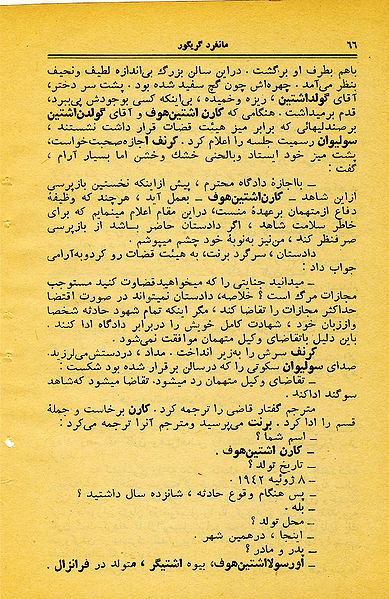 ۶۶ مانفرد گریگور
باهم بطرف او برگشت . دراین سالن بزرگ بی‌اندازه لطیف ونحیف
بنظر می‌آمد . چهره‌اش چون گچ سفید شده بود . پشت سر دختر،
آقای گولداشتین ، ریزه وخمیده ، بی‌اینکه کسی بوجودش پی‌ببرد،
قدم برمیداشت . هنگامی که کارن اشتین‌هوف و آقای گولدن‌اشتین
برصندلیهائی که برابر میز هیئت قضات قرار داشت نشستند ،
سولیوان رسمیت جلسه را اعلام کرد . کرنف اجازه‌صحبت‌خواست،
پشت میز خود ایستاد وبالحنی خشك وخشن اما بسیار آرام ،
گفت :
ـ بااجازهٔ دادگاه محترم ، پیش ازاینکه نخستین بازپرسی
ازاین شاهد ـ کارن‌اشتین‌هوف ـ بعمل آید ، هرچند که وظیفهٔ
دفاع ازمتهمان برعهدهٔ منست، دراین مقام اعلام مینمایم که برای
خاطر سلامت شاهد ، اگر دادستان حاضر بـاشد از بازپرسی
صرفنظر کند ، من‌نیز به‌نوبهٔ خود چشم میپوشم .
دادستان ، سرگرد برنت، به هیئت قضات رو کردوبه‌آرامی
جواب داد :
ـ میدانید جنایتی را که میخواهیدقضاوت کنید مستوجب
مجازات مرگ است ؟ خلاصه، دادستان نمیتواند در صورت اقتضا
حداکثر مجازات را تقاضا کند ، مگر اینکه تمام شهود حادثه شخصا
واززبان خود ، شهادت کامل خویش را دربرابر دادگاه ادا کنند .
باین دلیل باتقاضای وکیل متهمان موافقت نمی‌شود .
کرنف سرش را به‌زیر انداخت . مداد ، دردستش‌می‌لرزید.
صدای سولیوان سکوتی را که درسالن برقرار شده بود شکست :
ـ تقاضای وکیل متهمان رد میشود. تقاضا میشود که‌شاهد
سوگند اداکند.
مترجم گفتار قاضی را ترجمه کرد . کارن برخاست و جملهٔ
قسم را ادا کرد . برنت می‌پرسید ومترجم آنرا ترجمه می‌کرد :
ـ اسم شما ؟
ـ کارن اشتین‌هوف .
ـ تاریخ تولد ؟
ـ ۸ ژوئیه ۱۹۴۲ .
ـ پس هنگام وقوع حادثه ، شانزده سال داشتید ؟
ـ بله .
ـ محل تولد ؟
ـ اینجا ، درهمین شهر .
ـ پدر و مادر ؟
ـ اورسولااشتین‌هوف، بیوه اشتیگر ، متولد در فرانزال .